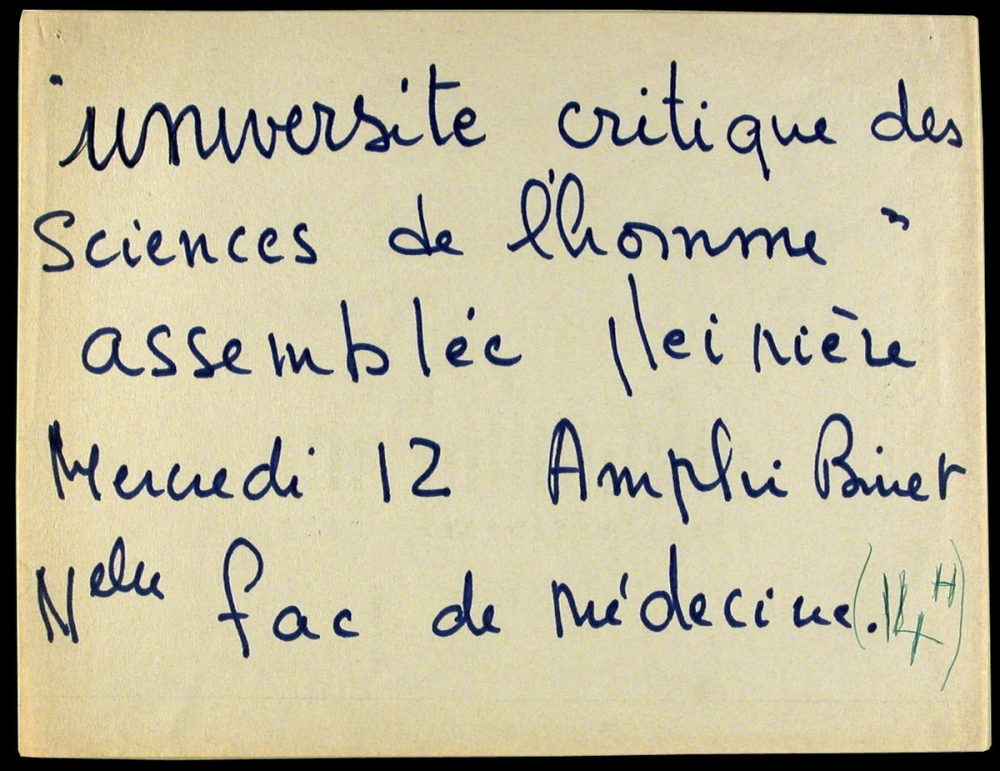 "université critique des
Sciences de l'homme"
assemblée pleinière
Mercredi 12 Amphi Binet
Nelle fac de médecine (.14H)